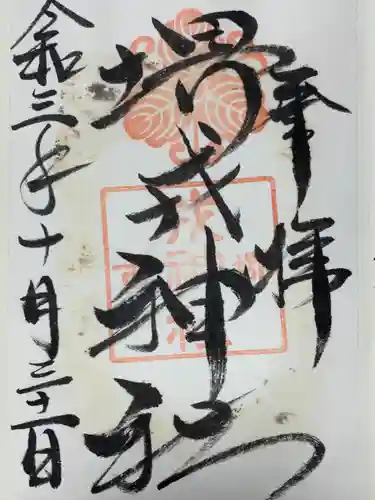 奉拝
堺戎神社
令和三年十月三十一日